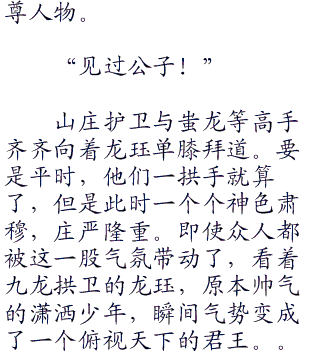 尊人物。
“见过公子！”
山庄护卫与蚩龙等高手
齐齐向着龙珏单膝拜道。要
是平时，他们一拱手就算
了，但是此时一个个神色肃
穆，庄严隆重。即使众人都
被这一股气氛带动了，看着
九龙拱卫的龙珏，原本帅气
的潇洒少年，瞬间气势变成
了一个俯视天下的君王。。